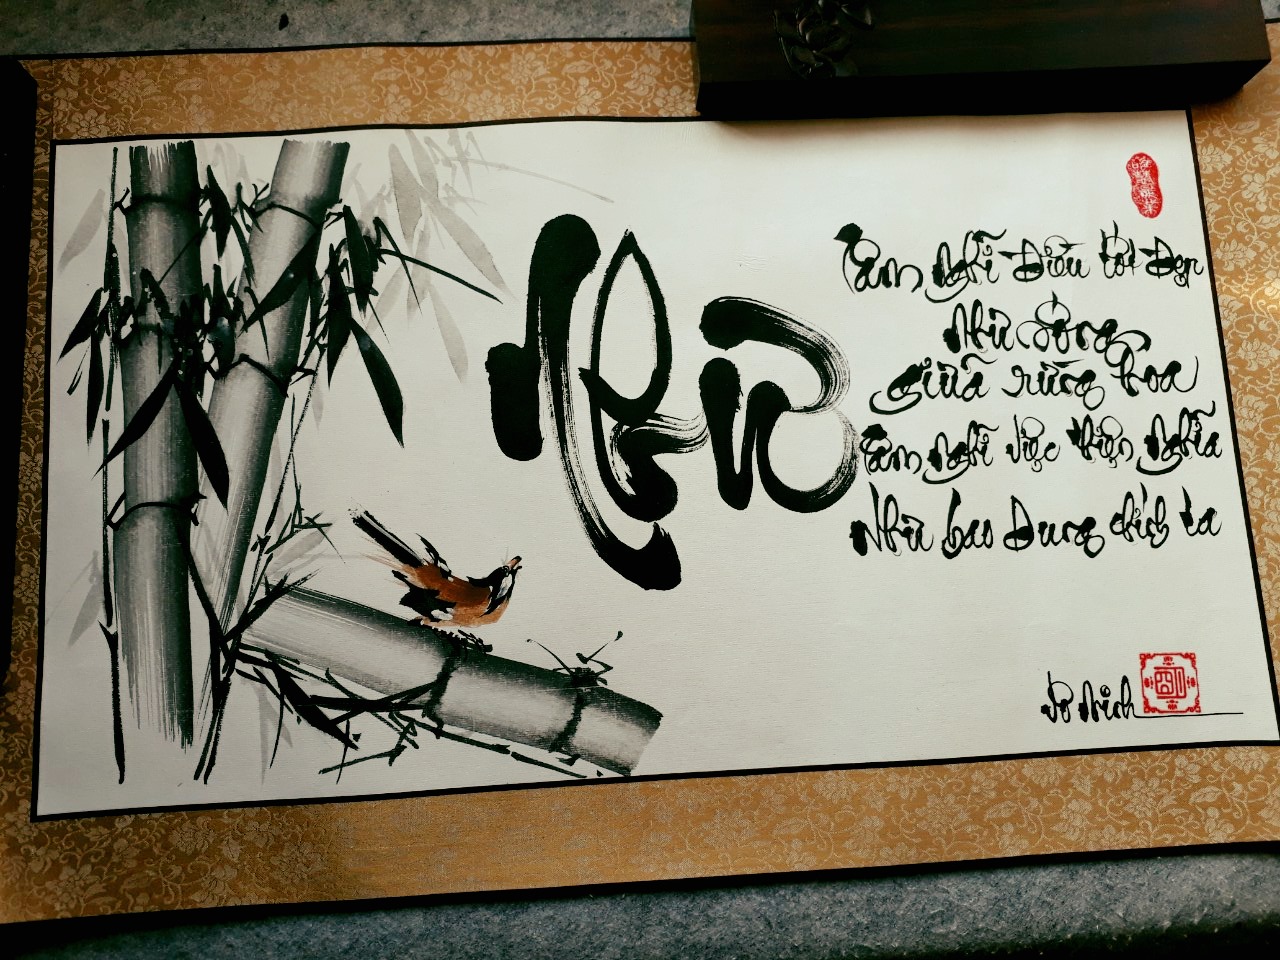 Như
Tâm nghĩ điều tốt đẹp
Như sống
giữa rừng hoa
Tâm nghĩ việc thiện nghĩa
Như bao dung chính ta